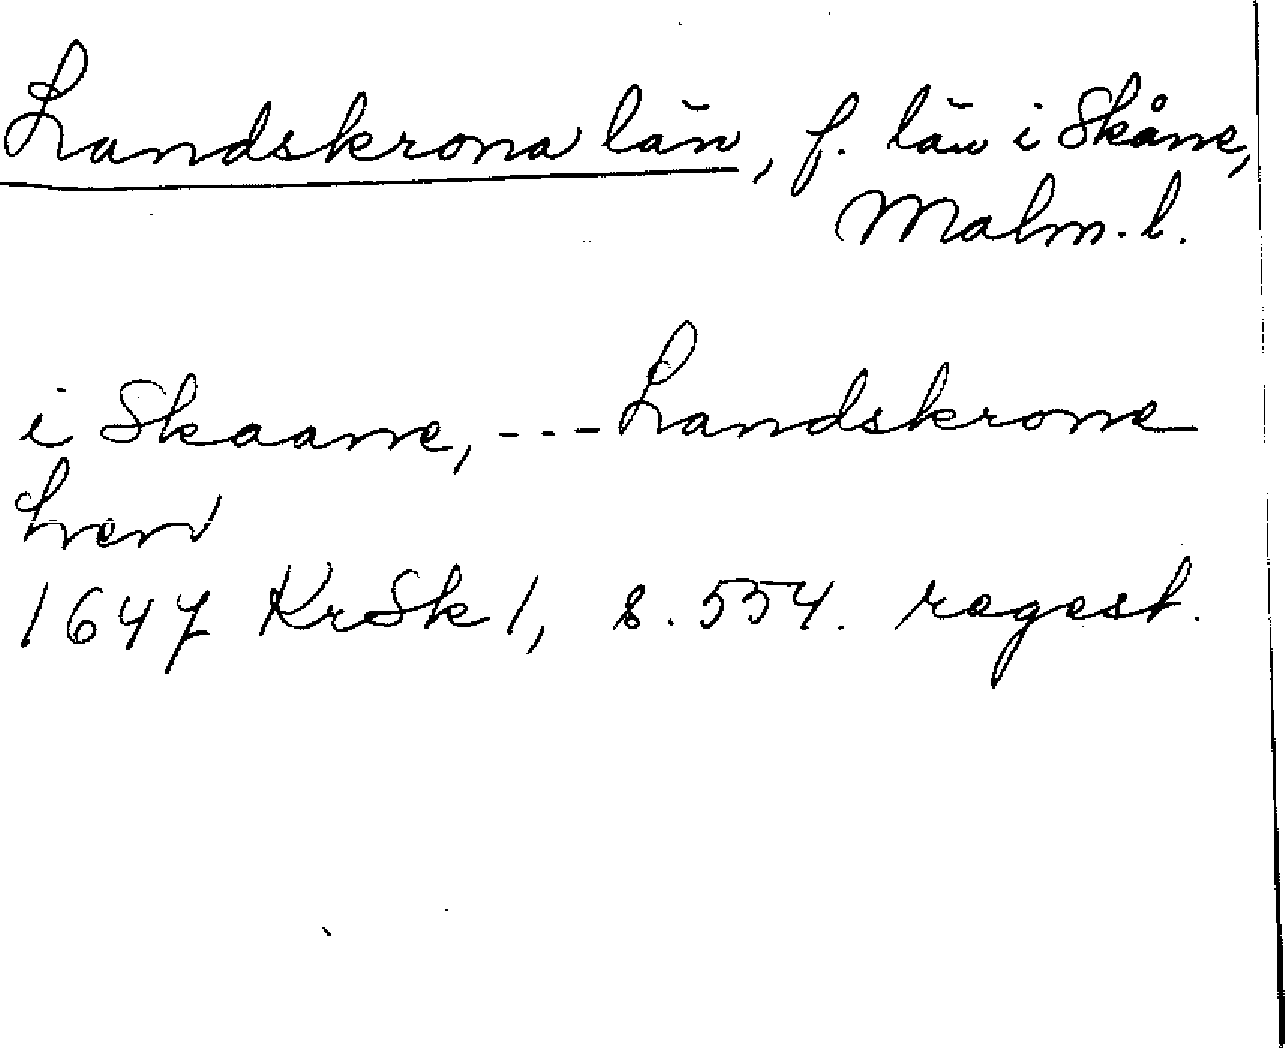 Landskrona län, f. län i Skåne,
Malm. l.
i Skaane, --- Landskrone
Lren
1647 KrSk 1, s. 554. regest.